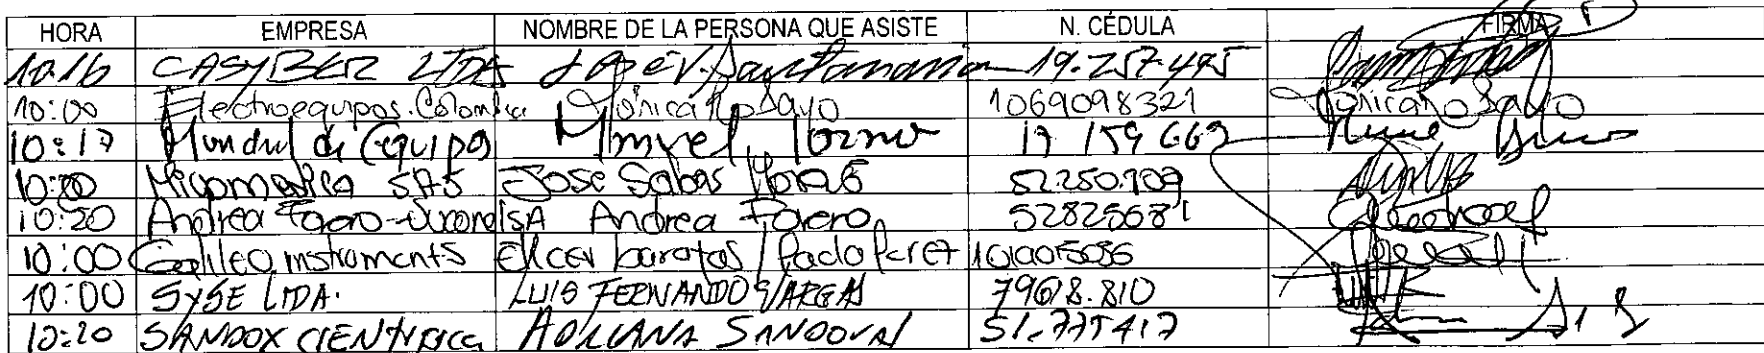 HORA EMPRESA NOMBRE DE LA PERSONA QUE ASISTE N. CÉDULA FIRMA
10:16 CASYBER LTDA José V. Santamaria 19.257.495
10:00 Electroequipos Colombia Mónica Rosayo 1069098321
10:17 Mundial de Equipos 17 159 669
10:00 SAS Jose Sabas 52.250.909
10:20 Andrea Forero SA Andrea Forero 52825681
10:00 Galileo instruments Elicer barajas / Paola Perez
10:00 SYSE LTDA. LUIS FERNANDO VARGAS 79618.810
10:20 SANDOX CIENTIFICA ADRIANA SANDOVAL 51.775417